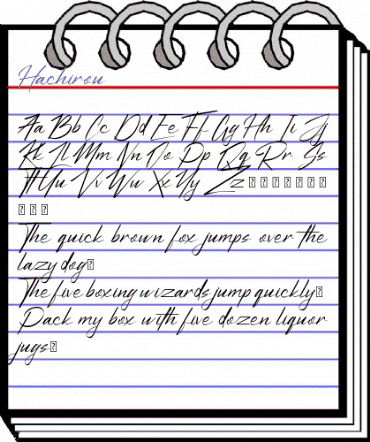 Hachirou
Aa Bb Cc Dd Ee Ff Gg Hh Ii Jj
Kk Ll Mm Nn Oo Pp Qq Rr Ss
Tt Uu Vv Ww Xx Yy Zz
The quick brown fox jumps over the
lazy dog
The five boxing wizards jump quickly
Pack my box with five dozen liquor
jugs